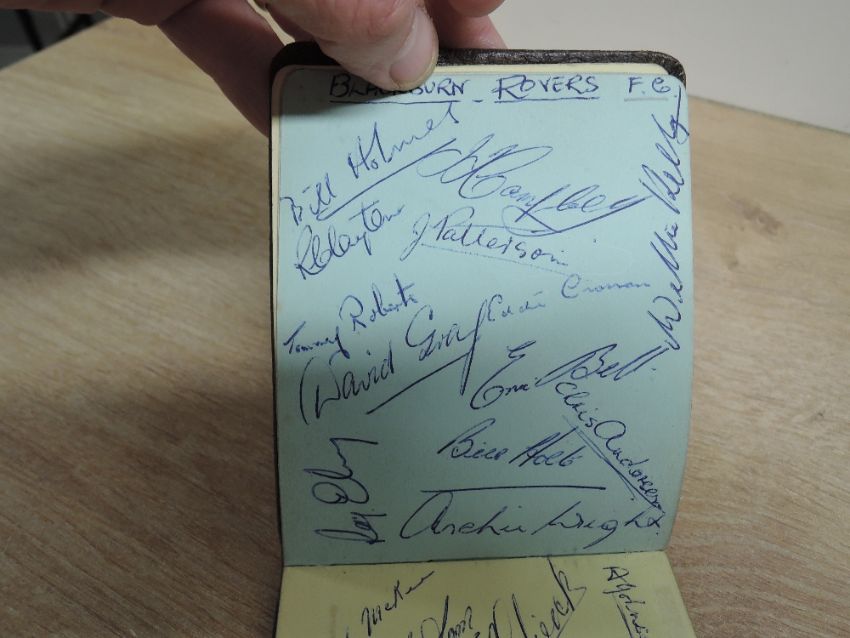 BLACKBURN ROVERS F.C.
Bill Holmes
J Campbell
Willie Kelly
R Clayton
J Patterson
Tommy Roberts
Eddie Crossan
David Gray
Eric Bell
Chris Anderson
Bill Holt
Archie Wright